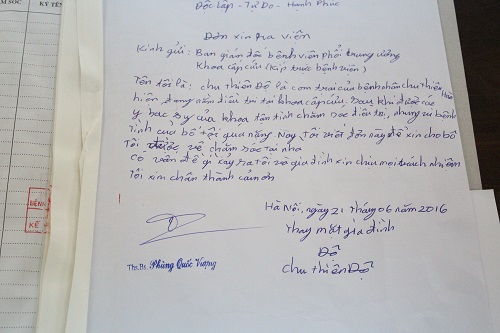 M SÓC
KÝ TÊN
Độc Lập - Tự Do - Hạnh Phúc
Đơn xin ra viện
Kính gửi: Ban giám đốc bệnh viện Phổi trung ương
Khoa cấp cứu (Kíp trực bệnh viện)
Tên tôi là: chu thiện Độ là con trai của bệnh nhân chu thiện
hiện đang nằm điều trị tại khoa cấp cứu, sau khi được các
y bác sỹ của khoa tận tình chăm sóc điều trị, nhưng vì bệnh
tình của bố tôi quá nặng Nay Tôi viết đơn này để xin cho bố
Tôi được về chăm sóc tại nhà
Có vấn đề gì xảy ra Tôi và gia đình xin chịu mọi trách nhiệm
Tôi xin chân thành cảm ơn
Hà Nội, ngày 21 tháng 06 năm 2016
thay mặt gia đình
Độ
chu thiện Độ
Ths.Bs. Phùng Quốc Vượng
BỆNH
KẾ